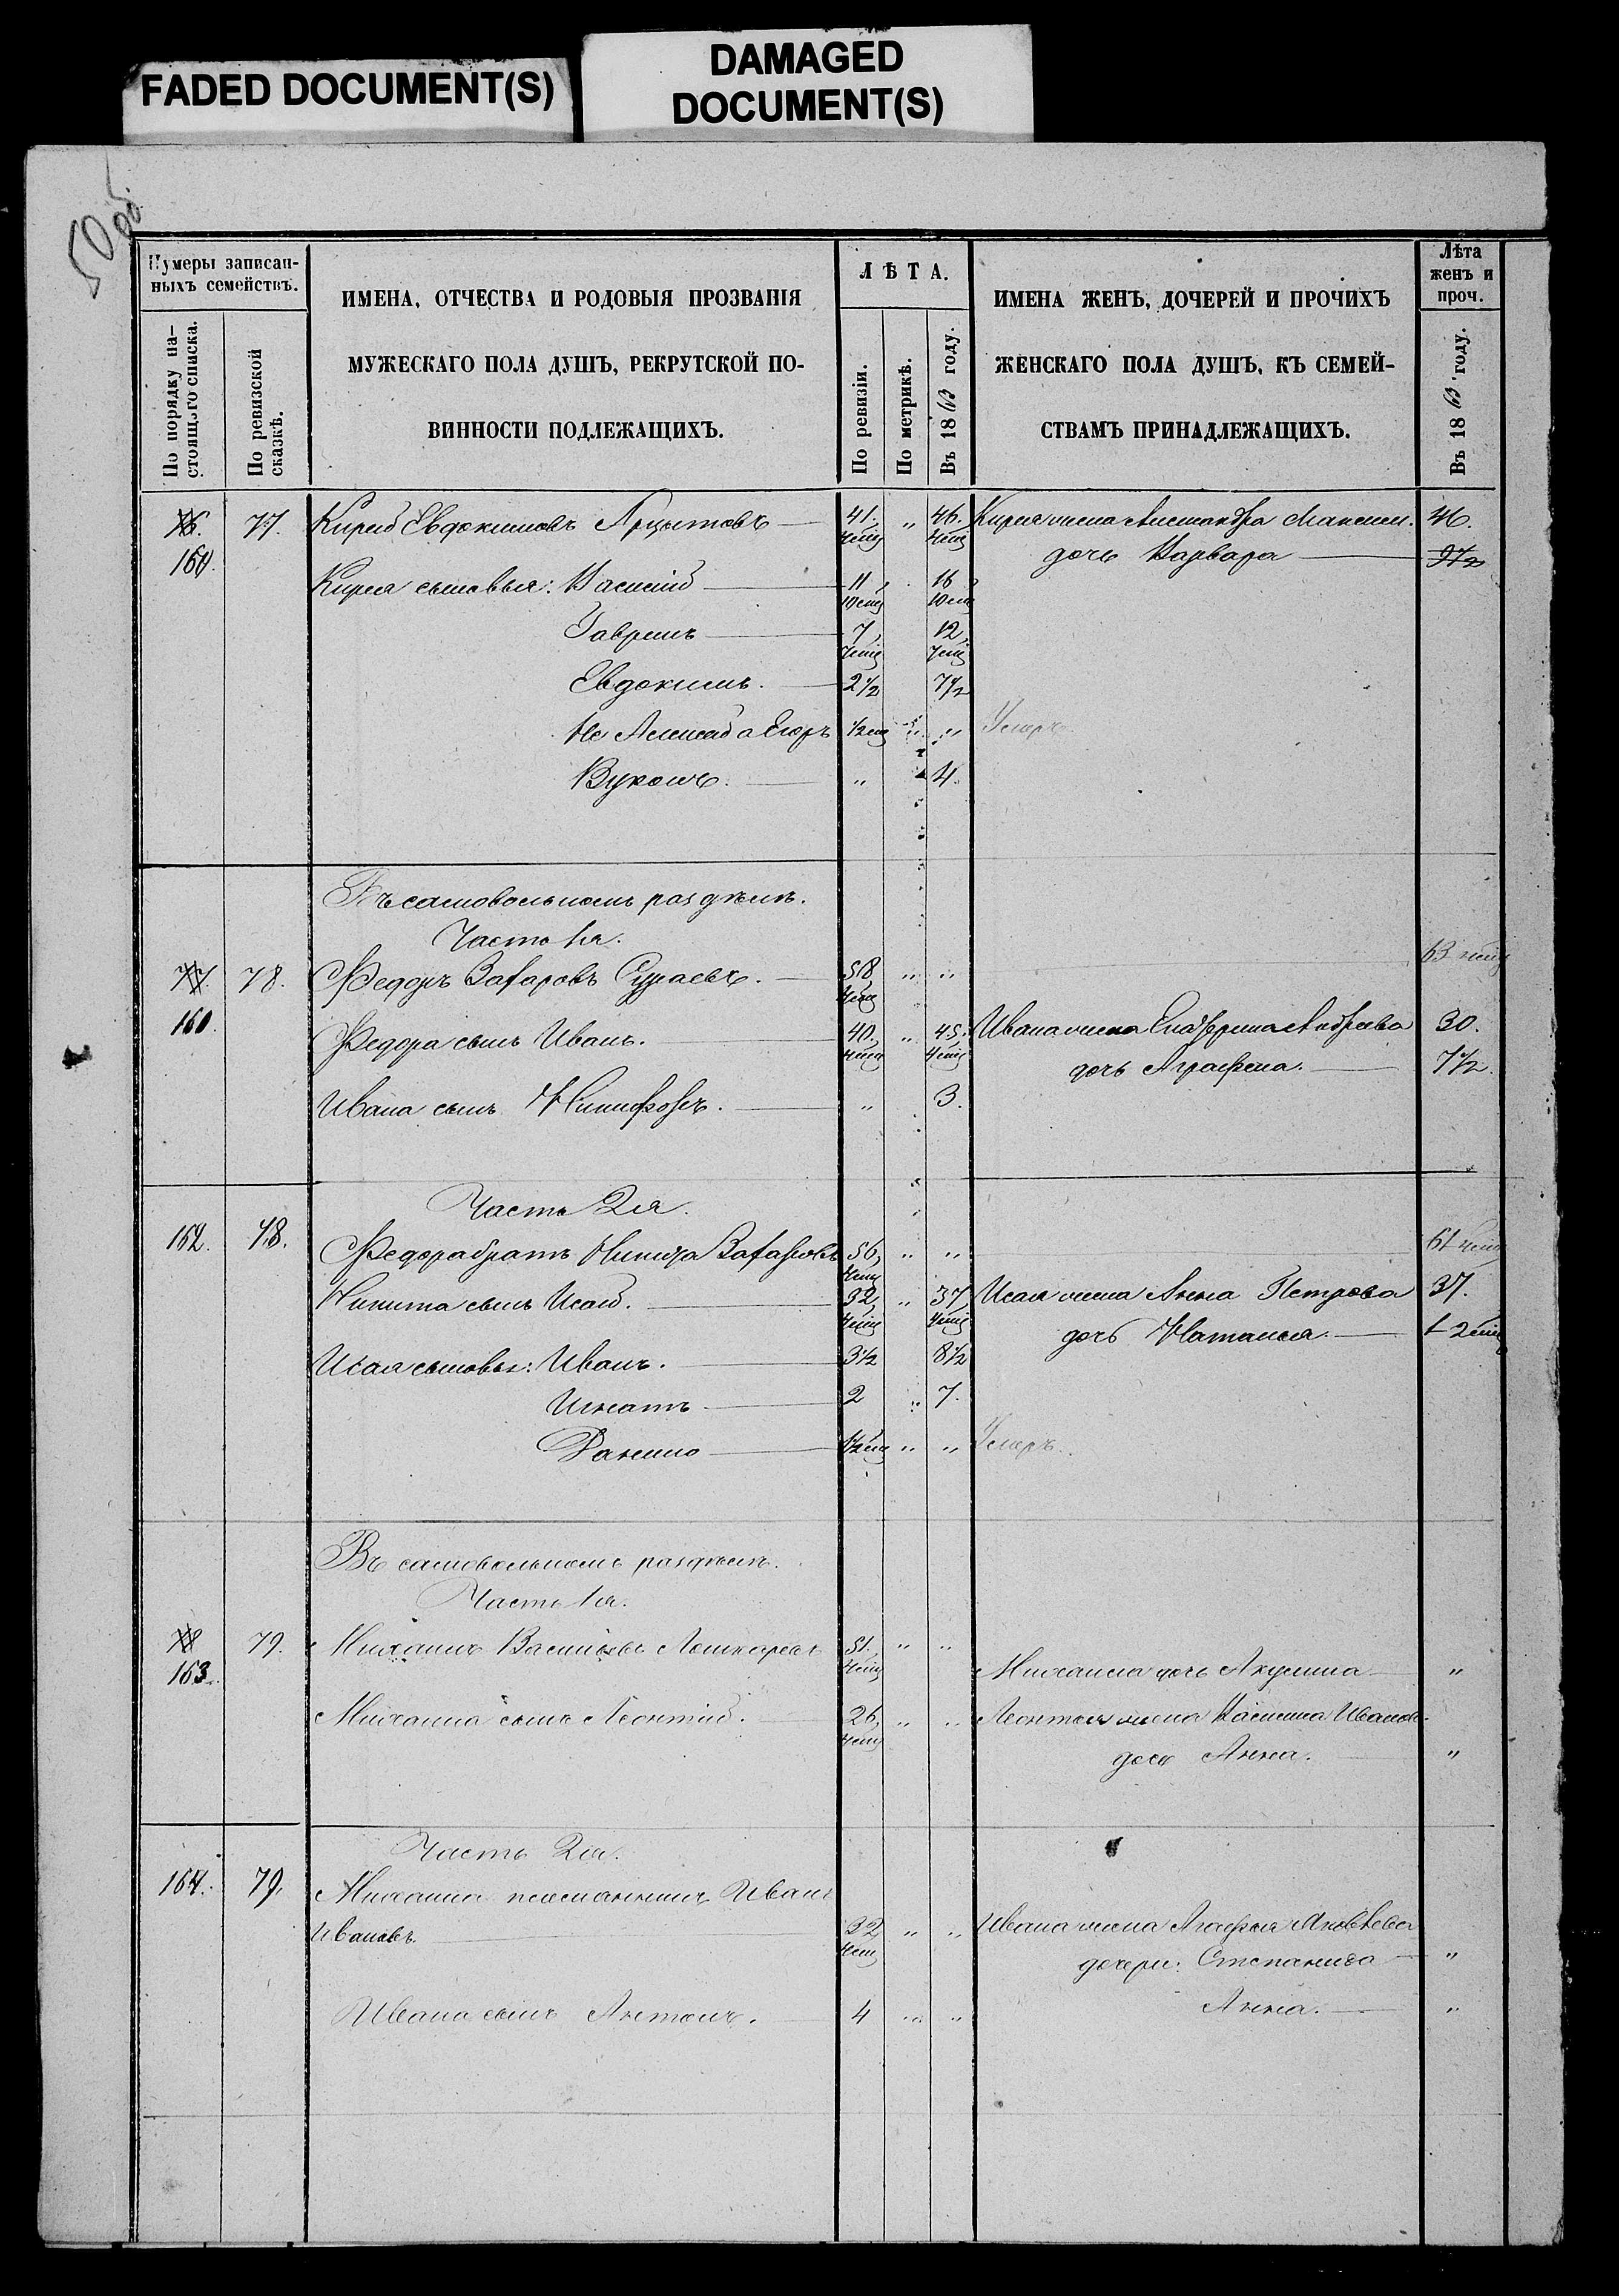 FADED DOCUMENT(S)
DAMAGED
DOCUMENT(S)
50 об.
Нумеры записан-
ныхъ семействъ.
По порядку на-
стоящаго списка.
По ревизской
сказкѣ.
ИМЕНА, ОТЧЕСТВА И РОДОВЫЯ ПРОЗВАНІЯ
МУЖЕСКАГО ПОЛА ДУШЪ, РЕКРУТСКОЙ ПО-
ВИННОСТИ ПОДЛЕЖАЩИХЪ.
ЛѢТА.
По ревизіи.
По метрикѣ.
Въ 1863 году.
ИМЕНА ЖЕНЪ, ДОЧЕРЕЙ И ПРОЧИХЪ
ЖЕНСКАГО ПОЛА ДУШЪ, КЪ СЕМЕЙ-
СТВАМЪ ПРИНАДЛЕЖАЩИХЪ.
Лѣта
женъ и
проч.
Въ 1863 году.
76. 77. Кирей Евдокимовъ 41. „ 46. Кирея жена Александра Максим. 46.
160. дочь Варвара 9½
Кирея сыновья: Василій 11 16
Гаврилъ 7, 12,
Евдокимъ. 2½ 7½
Не Алексей а Егоръ ½ „ „ Умеръ
Вуколъ. „ 4.
Въ самовольномъ раздѣлѣ.
Часть 1я.
77. 78. Федоръ Захаровъ 58 „ „ 63
160. Федора сынъ Иванъ. 40. „ 45. Ивана жена Екатерина Андреева 30.
дочь Аграфена. 7½.
Ивана сынъ Никифоръ. „ 3.
Часть 2я.
162. 78. Федора братъ Никита Захаровъ 56, „ „ 61
Никита сынъ Исай. 32, „ 37 Исая жена Анна Петрова 37.
дочь Наталья.
Исая сыновья: Иванъ. 3½ 8½
Игнатъ 2 „ 7.
Данило ½ „ „ Умеръ.
Въ самовольномъ раздѣлѣ.
Часть 1я.
78 79. Михаилъ Васильевъ 51. „ „
163. Михаила дочь Акулина „
Михаила сынъ Леонтий. 26, „ „ Леонтья жена Василиса Иванов.
дочь Анна. „
Часть 2я.
164. 79. Михаила племянникъ Иванъ
Ивановъ. 32 „ „ Ивана жена Агафья Яковлева
дочери: Степанида „
Ивана сынъ Антонъ. 4 „ „ Анна. „